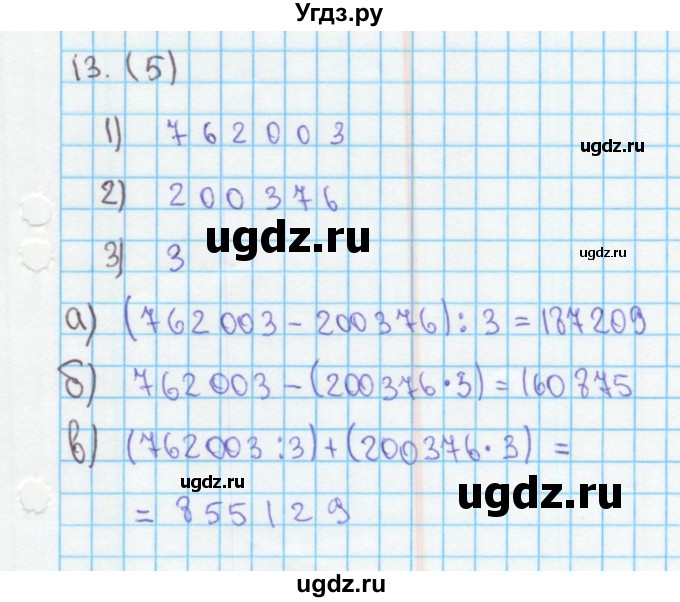 Угдз.ру
13. (5)
1) 762003
ugdz.ru
2) 200376
ugdz.ru
3) 3
ugdz.ru
а) (762003 - 200376) : 3 = 187209
б) 762003 - (200376 · 3) = 160875
в) (762003 : 3) + (200376 · 3) =
ugdz.ru
ugdz.ru
= 855129
ugdz.ru
ugdz.ru